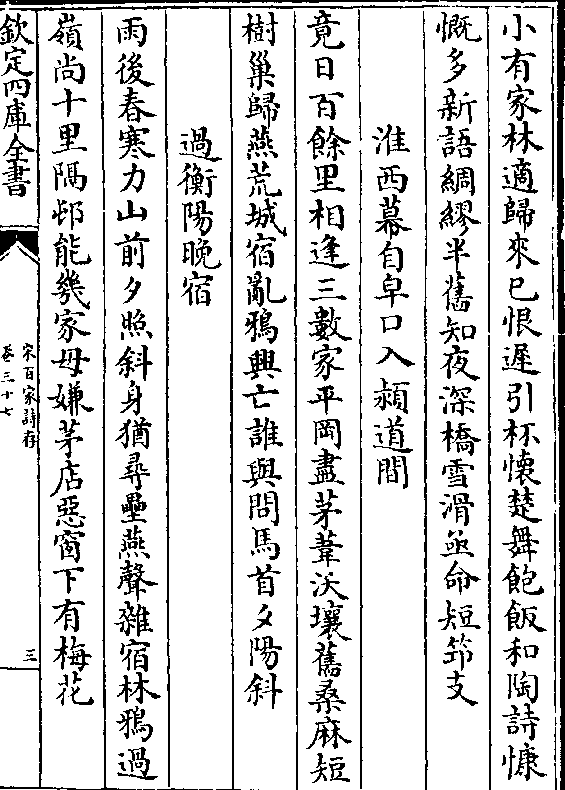 小有家林適歸來已恨遲引杯懷楚舞飽飯和陶詩慷
慨多新語綢繆半舊知夜深橋雪滑亟命短笻支
淮西幕自皁口入潁道間
竟日百餘里相逢三數家平岡盡茅葦沃壤舊桑麻短
樹巢歸燕荒城宿亂鴉興亡誰與問馬首夕陽斜
過衡陽晚宿
雨後春寒力山前夕照斜身猶尋壘燕聲雜宿林鴉過
嶺尚十里隔邨能幾家毋嫌茅店惡窗下有梅花
欽定四庫全書
宋百家詩存
卷三十七
三